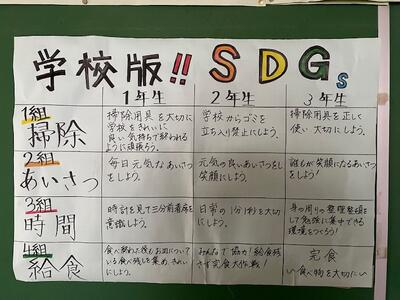 学校版!! SDGs
1年生 2年生 3年生
1組
掃除
掃除用具を大切に
学校をきれいに
良い気持ちで終われる
ように頑張ろう。
学校からゴミを
立ち入り禁止にしよう。
掃除用具を正しく
使い大切にしよう。
2組
あいさつ
毎日元気なあいさつ
をしよう。
元気の良いあいさつをし
笑顔にしよう。
誰もが笑顔になるあいさつ
をしよう!
3組
時間
時計を見て三分前着席を
意識しよう。
日常の1分1秒を大切
にしよう。
身の周りの整理整頓を
して勉強に集中できる
環境をつくろう!
4組
給食
食べ終わった後もお皿について
いる食べ残しを集め、きれい
にしよう。
みんなで協力!給食残
さず完食大作戦!
完食
〜食べ物を大切に〜